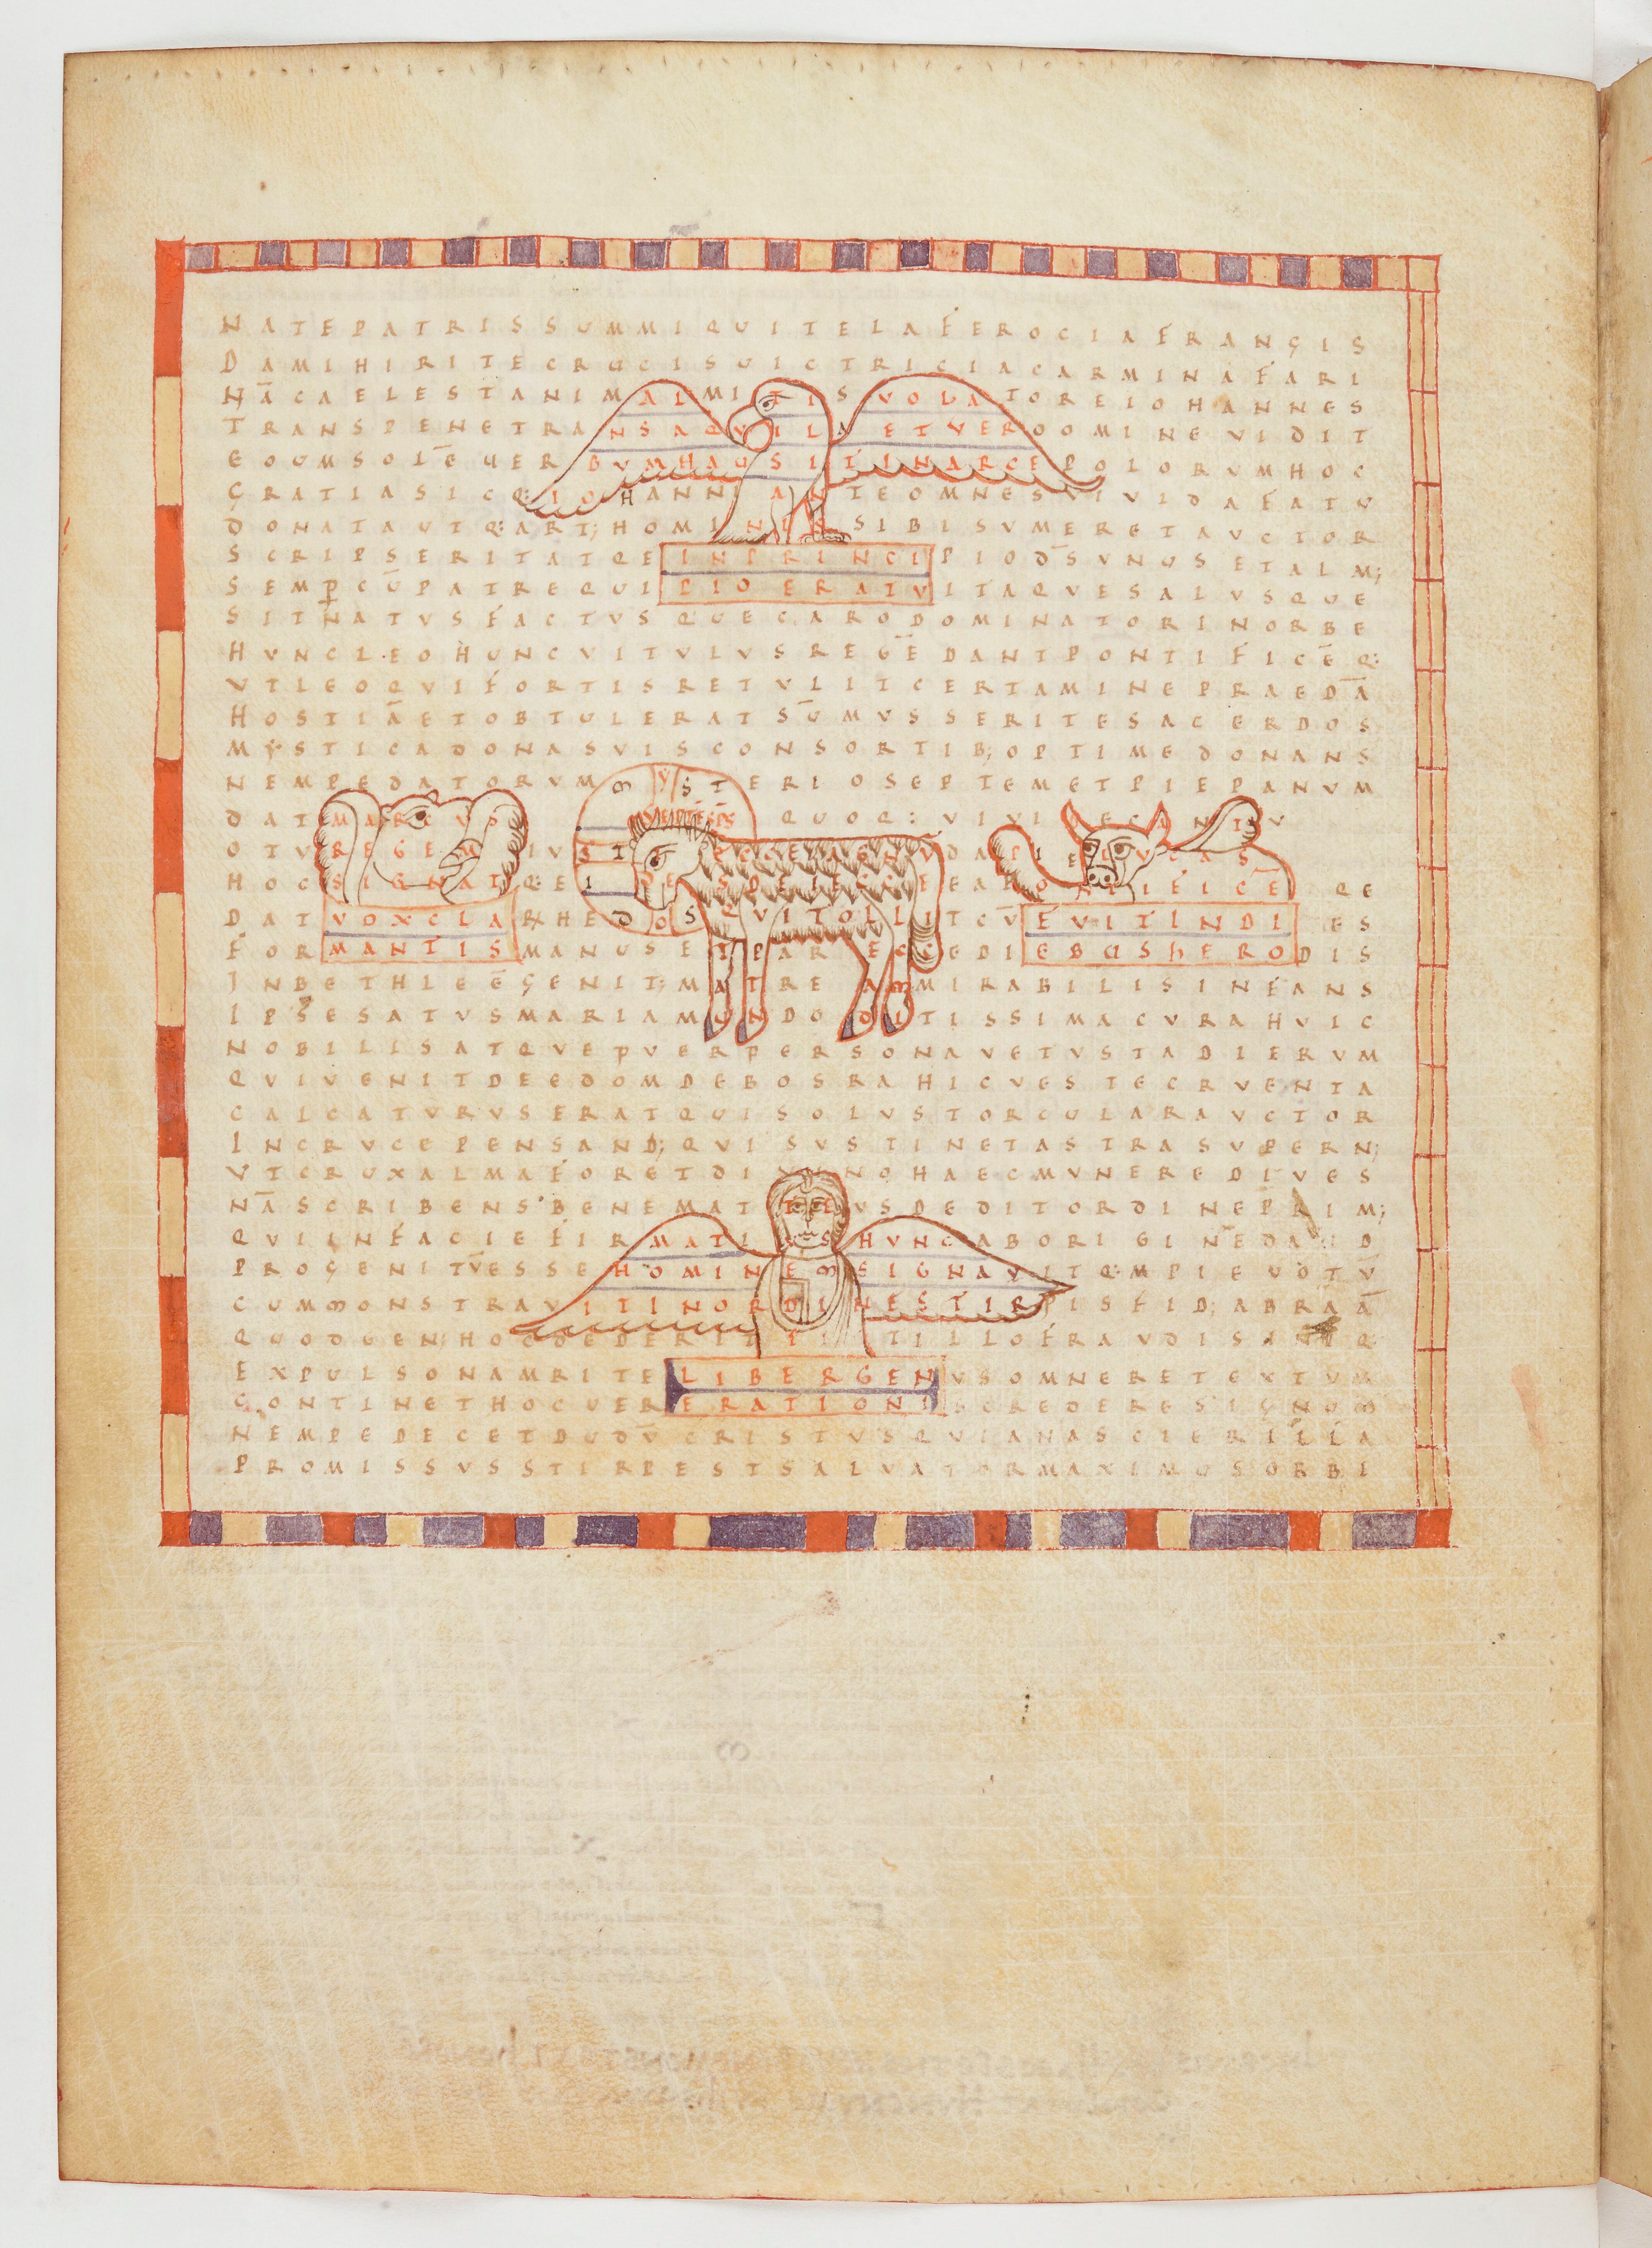 NATEPATRISSUMMIQUITELAFEROCIAFRANGIS
DAMIHIRITECRUCISUICTRICIACARMINAFARI
NĀCAELESTANIMALMITISVOLATOREIOHANNES
TRANSPENETRANSAQVILAETVERODOMINEVIDIT
EOUMSOLĒUERBVMHAUSITINARCEPOLORVMHOC
GRATIASICQ:IOHANNANTEOMNESVIVIDAFATV
DONATAUTQ:ART;HOMINISSIBISVMERETAVCTOR
SCRIPSERITATQEINPRINCIPIODS̄VNUSETALM;
SEMPCŪPATREQUIPIOERATVITAQVESALVSQUE
SITNATVSFACTVSQUECARODOMINATORINORBE
HVNCLEOHUNCVITVLVSREGĒDANTPONTIFICĒQ:
VTLEOQVIFORTISRETVLITCERTAMINEPRAEDĀ
HOSTIĀETOBTULERATSŪMVSSERITESACERDOS
MYSTICADONASVISCONSORTIB;OPTIMEDONANS
NEMPEDATORVMMYSTERIOSEPTEMETPIEPANVM
DATMARCVS QUOQ:VIVI
OTVREGEM LVCAS
HOCSIGNATQ:EI PONTIFICĒ QE
DATVOXCLARXHEDOSQVITOLLITCV̄EVITINDI ES
FORMANTISMANUSETPAR EBUSHERODIS
INBETHLEĒGENIT;MATRE AMMIRABILISINFANS
IPSESATVSMARIAMUNDO DITISSIMACVRAHVIC
NOBILISATQVEPVERPERSONAVETVSTADIERVM
QVIVENITDEEDOMDEBOSRAHICVESTECRVENTA
CALCATVRVSERATQUISOLVSTORCULARAVCTOR
INCRVCEPENSAND;QVISVSTINETASTRASVPERN;
VTCRUXALMAFORETDIVINOHAECMVNEREDIVES
NĀSCRIBENSBENEMATTEVSDEDITORDINEPRIM;
QVIINFACIEFIRMATISHVNCABORIGINĒDAVID
PROGENITV̄ESSEHOMINEMSIGNAVITQ:MPIEVOTV̄
CUMMONSTRAVITINORDINESTIRPISFID;ABRAĀ
QUODGEN;HOCDEDERIT ILLOFRAVDISINIQ
EXPULSONAMRITELIBERGENVSOMNERETEXTVM
CONTINETHOCUERERATIONISCREDERESIGNUM
NEMPEDECETDUDV̄CRISTVSQVIANASCIERILLA
PROMISSVSSTIRPESTSALVATORMAXIMUSORBI